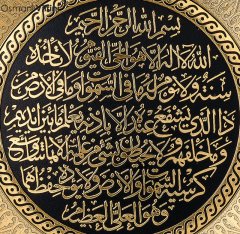 Osmanlı
بسم الله الرحمن الرحيم
الله لا اله الا هو الحي القيوم لا تأخذه
سنة ولا نوم له ما في السموات وما في الارض من
ذا الذي يشفع عنده الا باذنه يعلم ما بين ايديهم
وما خلفهم ولا يحيطون بشيء من علمه الا بما شاء وسع
كرسيه السموات والارض ولا يؤده حفظهما
وهو العلي العظيم